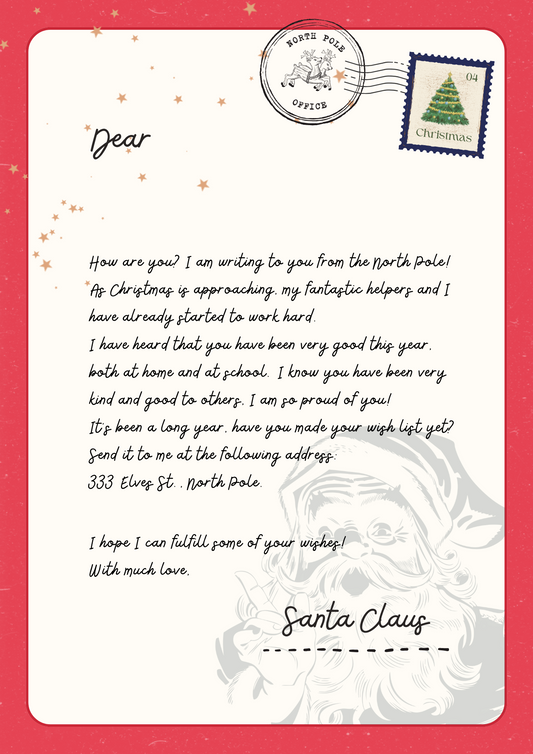 NORTH POLE
OFFICE
04
Christmas
Dear
How are you? I am writing to you from the North Pole!
As Christmas is approaching, my fantastic helpers and I
have already started to work hard.
I have heard that you have been very good this year,
both at home and at school. I know you have been very
kind and good to others, I am so proud of you!
It's been a long year, have you made your wish list yet?
Send it to me at the following address:
333 Elves St. , North Pole.
I hope I can fulfill some of your wishes!
With much love,
Santa Claus